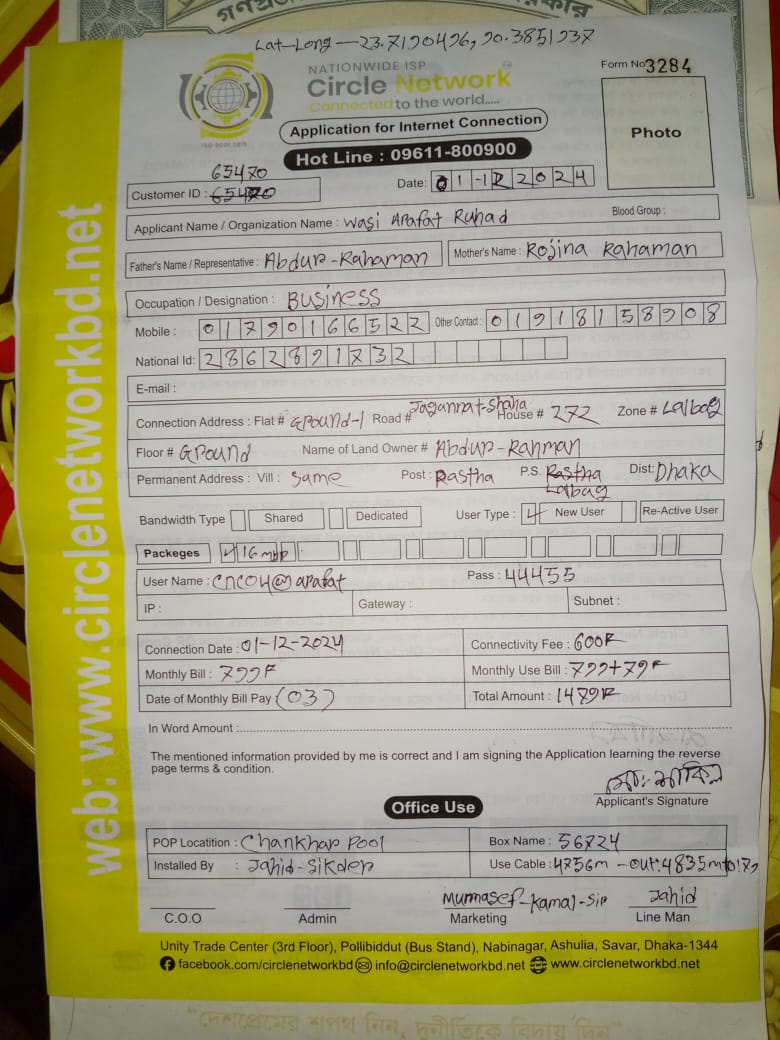 গণপ্রজ
কার
Lat-Long — 23.7190496, 90.3851937
NATIONWIDE ISP
Circle Network
Connected to the world.....
ISO 9001:2015
Form No 3284
Photo
Application for Internet Connection
Hot Line : 09611-800900
65470
Customer ID : 65470
Date: 01-12 2024
Applicant Name / Organization Name : Wasi Arafat Ruhad
Blood Group :
Father's Name / Representative : Abdur-Rahaman
Mother's Name : Rojina Rahaman
Occupation / Designation : Business
Mobile : 01790166522
Other Contact : 01918158908
National Id: 2862891732
E-mail :
Connection Address : Flat # Ground-1 Road # Jagannat-Shaha House # 272 Zone # Lalbag
Floor # Ground Name of Land Owner # Abdur-Rahman
Permanent Address : Vill : Same Post : Rastha P.S. Rastha Dist: Dhaka
Lalbag
Bandwidth Type Shared Dedicated User Type : New User Re-Active User
Packeges 16 mbp
User Name : cnc04@arafat Pass : 44455
IP : Gateway : Subnet :
Connection Date : 01-12-2024 Connectivity Fee : 600
Monthly Bill : 799 Monthly Use Bill : 799+79
Date of Monthly Bill Pay (03) Total Amount : 1479
In Word Amount :
The mentioned information provided by me is correct and I am signing the Application learning the reverse
page terms & condition.
Applicant's Signature
Office Use
POP Locatition : Chankhar Pool Box Name : 56724
Installed By : Jahid-Sikder Use Cable : 4756m - out:4835m
C.O.O
Admin
Munnasef-Kamal-Sir
Marketing
Jahid
Line Man
Unity Trade Center (3rd Floor), Pollibiddut (Bus Stand), Nabinagar, Ashulia, Savar, Dhaka-1344
facebook.com/circlenetworkbd info@circlenetworkbd.net www.circlenetworkbd.net
web: www.circlenetworkbd.net
"দেশপ্রেমের শপথ নিন, দুর্নীতিকে বিদায় দিন"